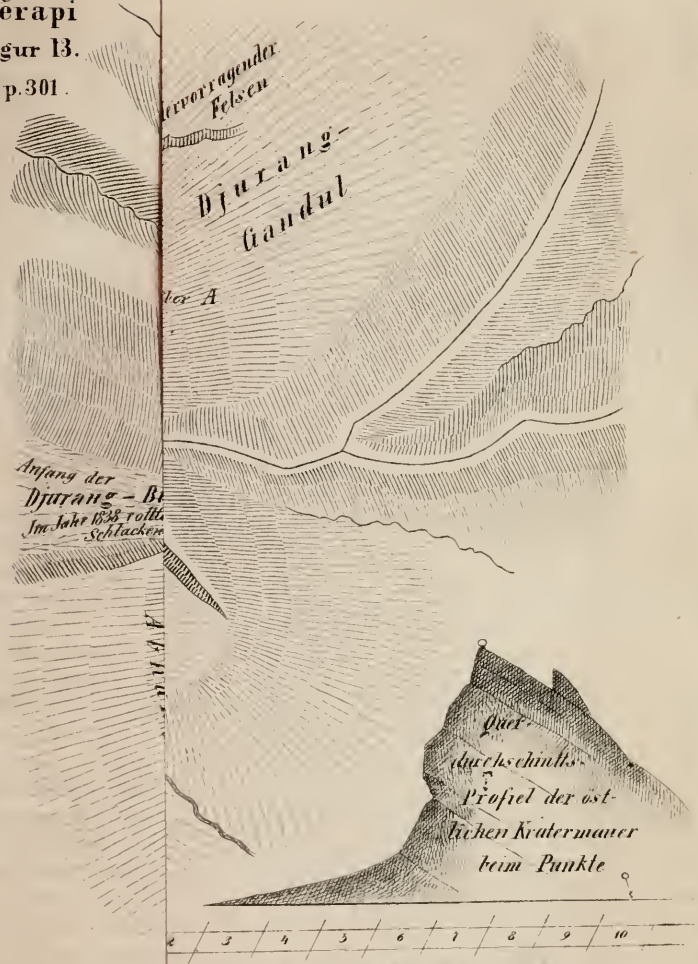 erapi
gur 13.
p. 301.
ervorragender
Felsen
Djurang-
Gandul
A
Anfang der
Djurang - B
Im Jahr 1838 rollt
Schlacken
Quer-
durchschintts-
Profiel der öst-
lichen Kratermauer
beim Punkte
2 3 4 5 6 7 8 9 10